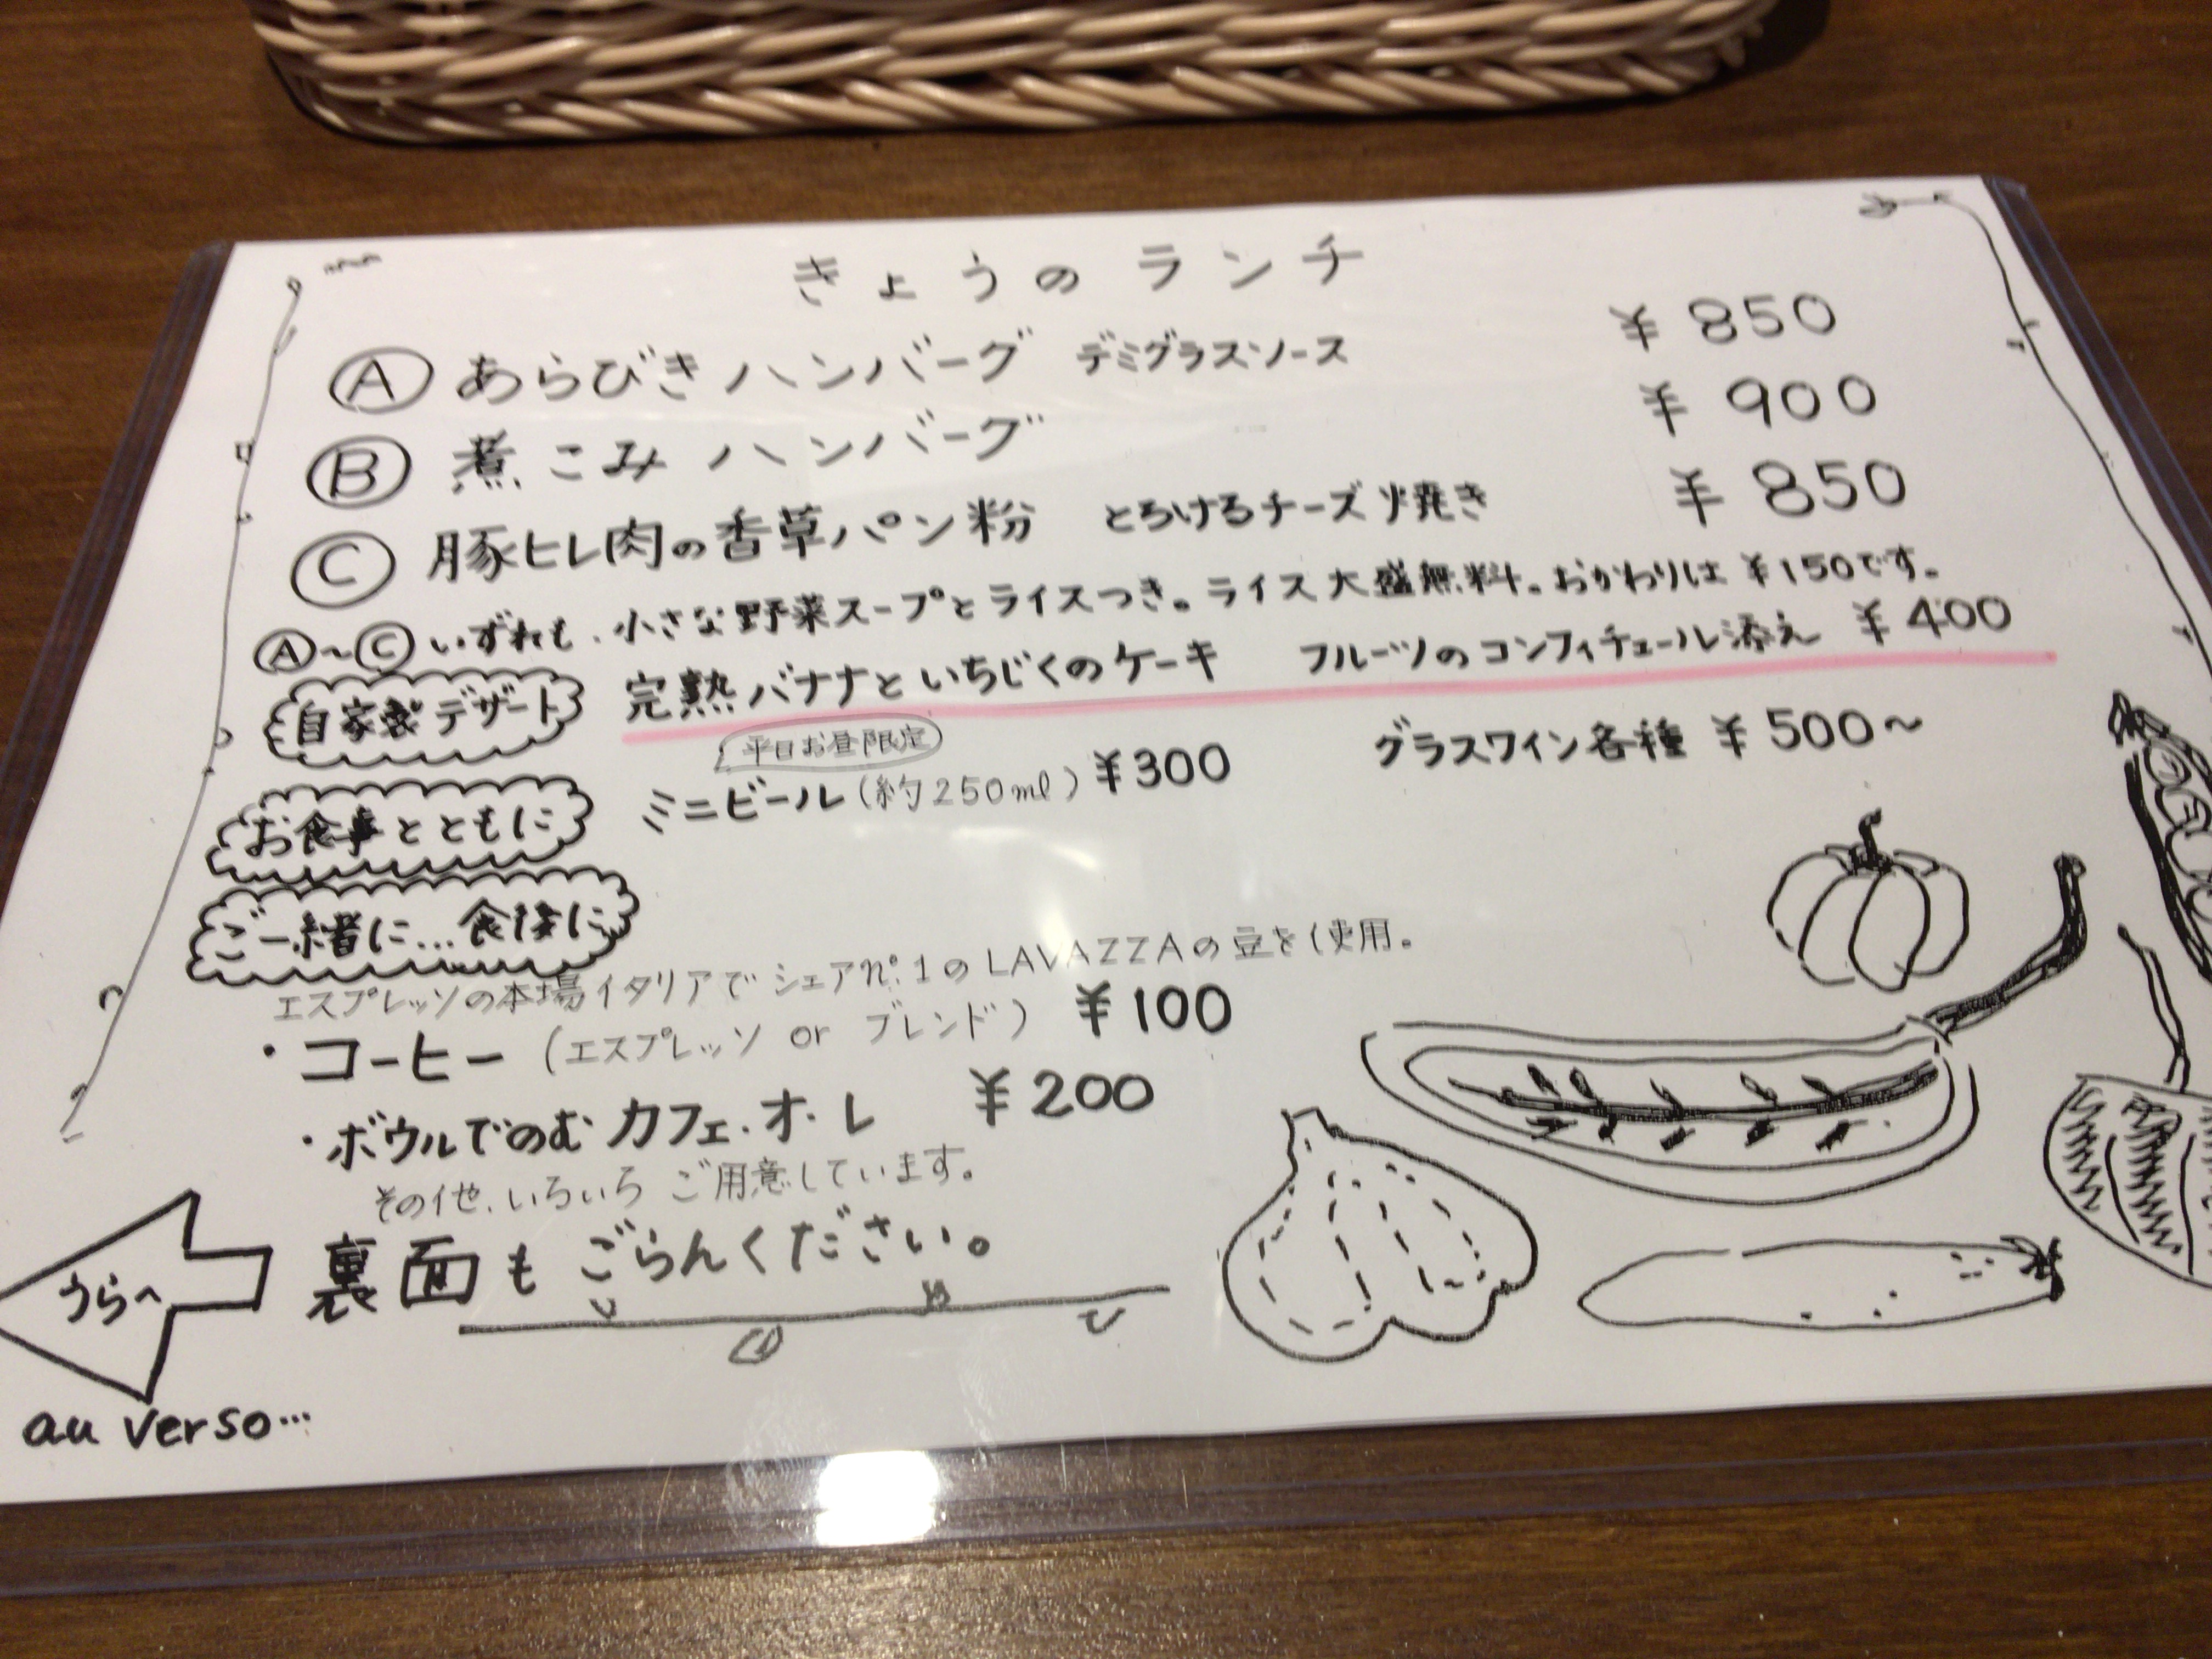 きょうのランチ
Ⓐ あらびきハンバーグ デミグラスソース ¥850
Ⓑ 煮こみハンバーグ ¥900
Ⓒ 豚ヒレ肉の香草パン粉 とろけるチーズ焼き ¥850
Ⓐ~Ⓒいずれも、小さな野菜スープとライスつき。ライス大盛無料。おかわりは¥150です。
自家製デザート 完熟バナナといちじくのケーキ フルーツのコンフィチュール添え ¥400
平日お昼限定
お食事とともに ミニビール(約250ml)¥300 グラスワイン各種 ¥500~
ご一緒に…食後に
エスプレッソの本場イタリアでシェアnº.1のLAVAZZAの豆を使用。
・コーヒー(エスプレッソ or ブレンド) ¥100
・ボウルでのむカフェ・オ・レ ¥200
その他、いろいろご用意しています。
裏面もごらんください。
うらへ
au verso…